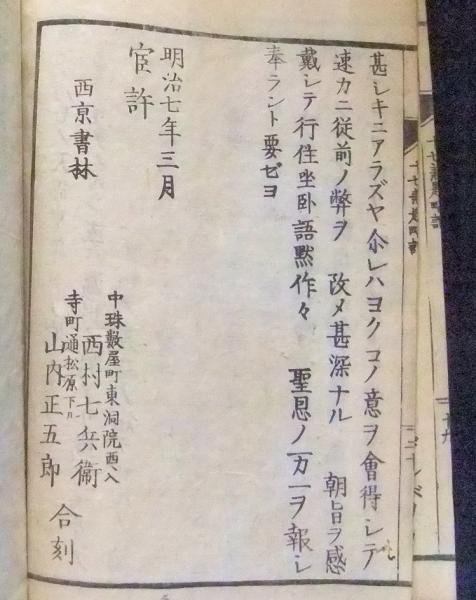 甚シキニアラズヤ尒レハヨクコノ意ヲ會得シテ
速カニ従前ノ弊ヲ 改メ甚深ナル 朝旨ヲ感
戴シテ行住坐卧語黙作々 聖恩ノ万一ヲ報シ
奉ラント要セヨ
明治七年三月
官許
西京書林
中珠數屋町東洞院西入
西村七兵衛
寺町通松原下ル
山内正五郎
合刻